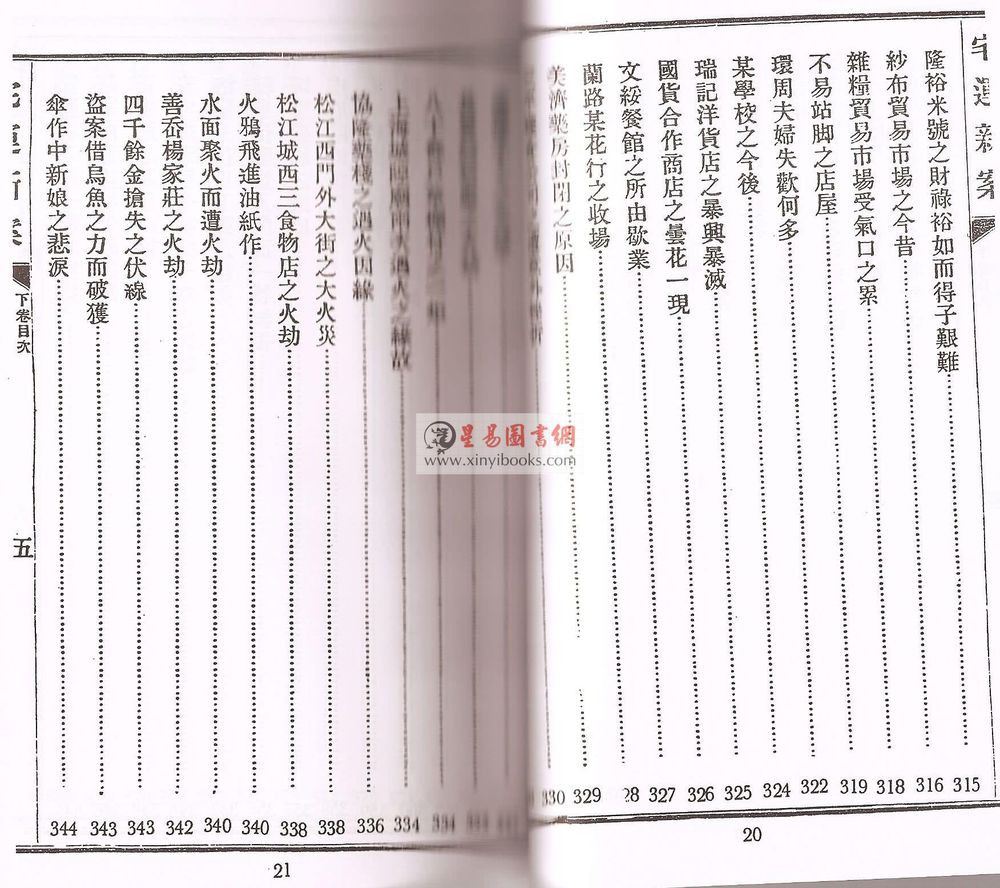 宅運新案
隆裕米號之財祿裕如而得子艱難……315
紗布貿易市場之今昔……316
雜糧貿易市場受氣口之累……318
不易站脚之店屋……319
環周夫婦失歡何多……322
某學校之今後……324
瑞記洋貨店之暴興暴滅……325
國貨合作商店之曇花一現……326
文綏餐館之所由歇業……327
蘭路某花行之收場……28
美濟藥房封閉之原因……329
330
20
334
協隆藥棧之遇火因緣……336
松江西門外大街之大火災……338
松江城西三食物店之火劫……338
火鴉飛進油紙作……340
水面聚火而遭火劫……340
善岙楊家莊之火劫……342
四千餘金搶失之伏線……343
盜案借烏魚之力而破獲……343
傘作中新娘之悲淚……344
下卷目次
五
21
星易圖書網
www.xinyibooks.com